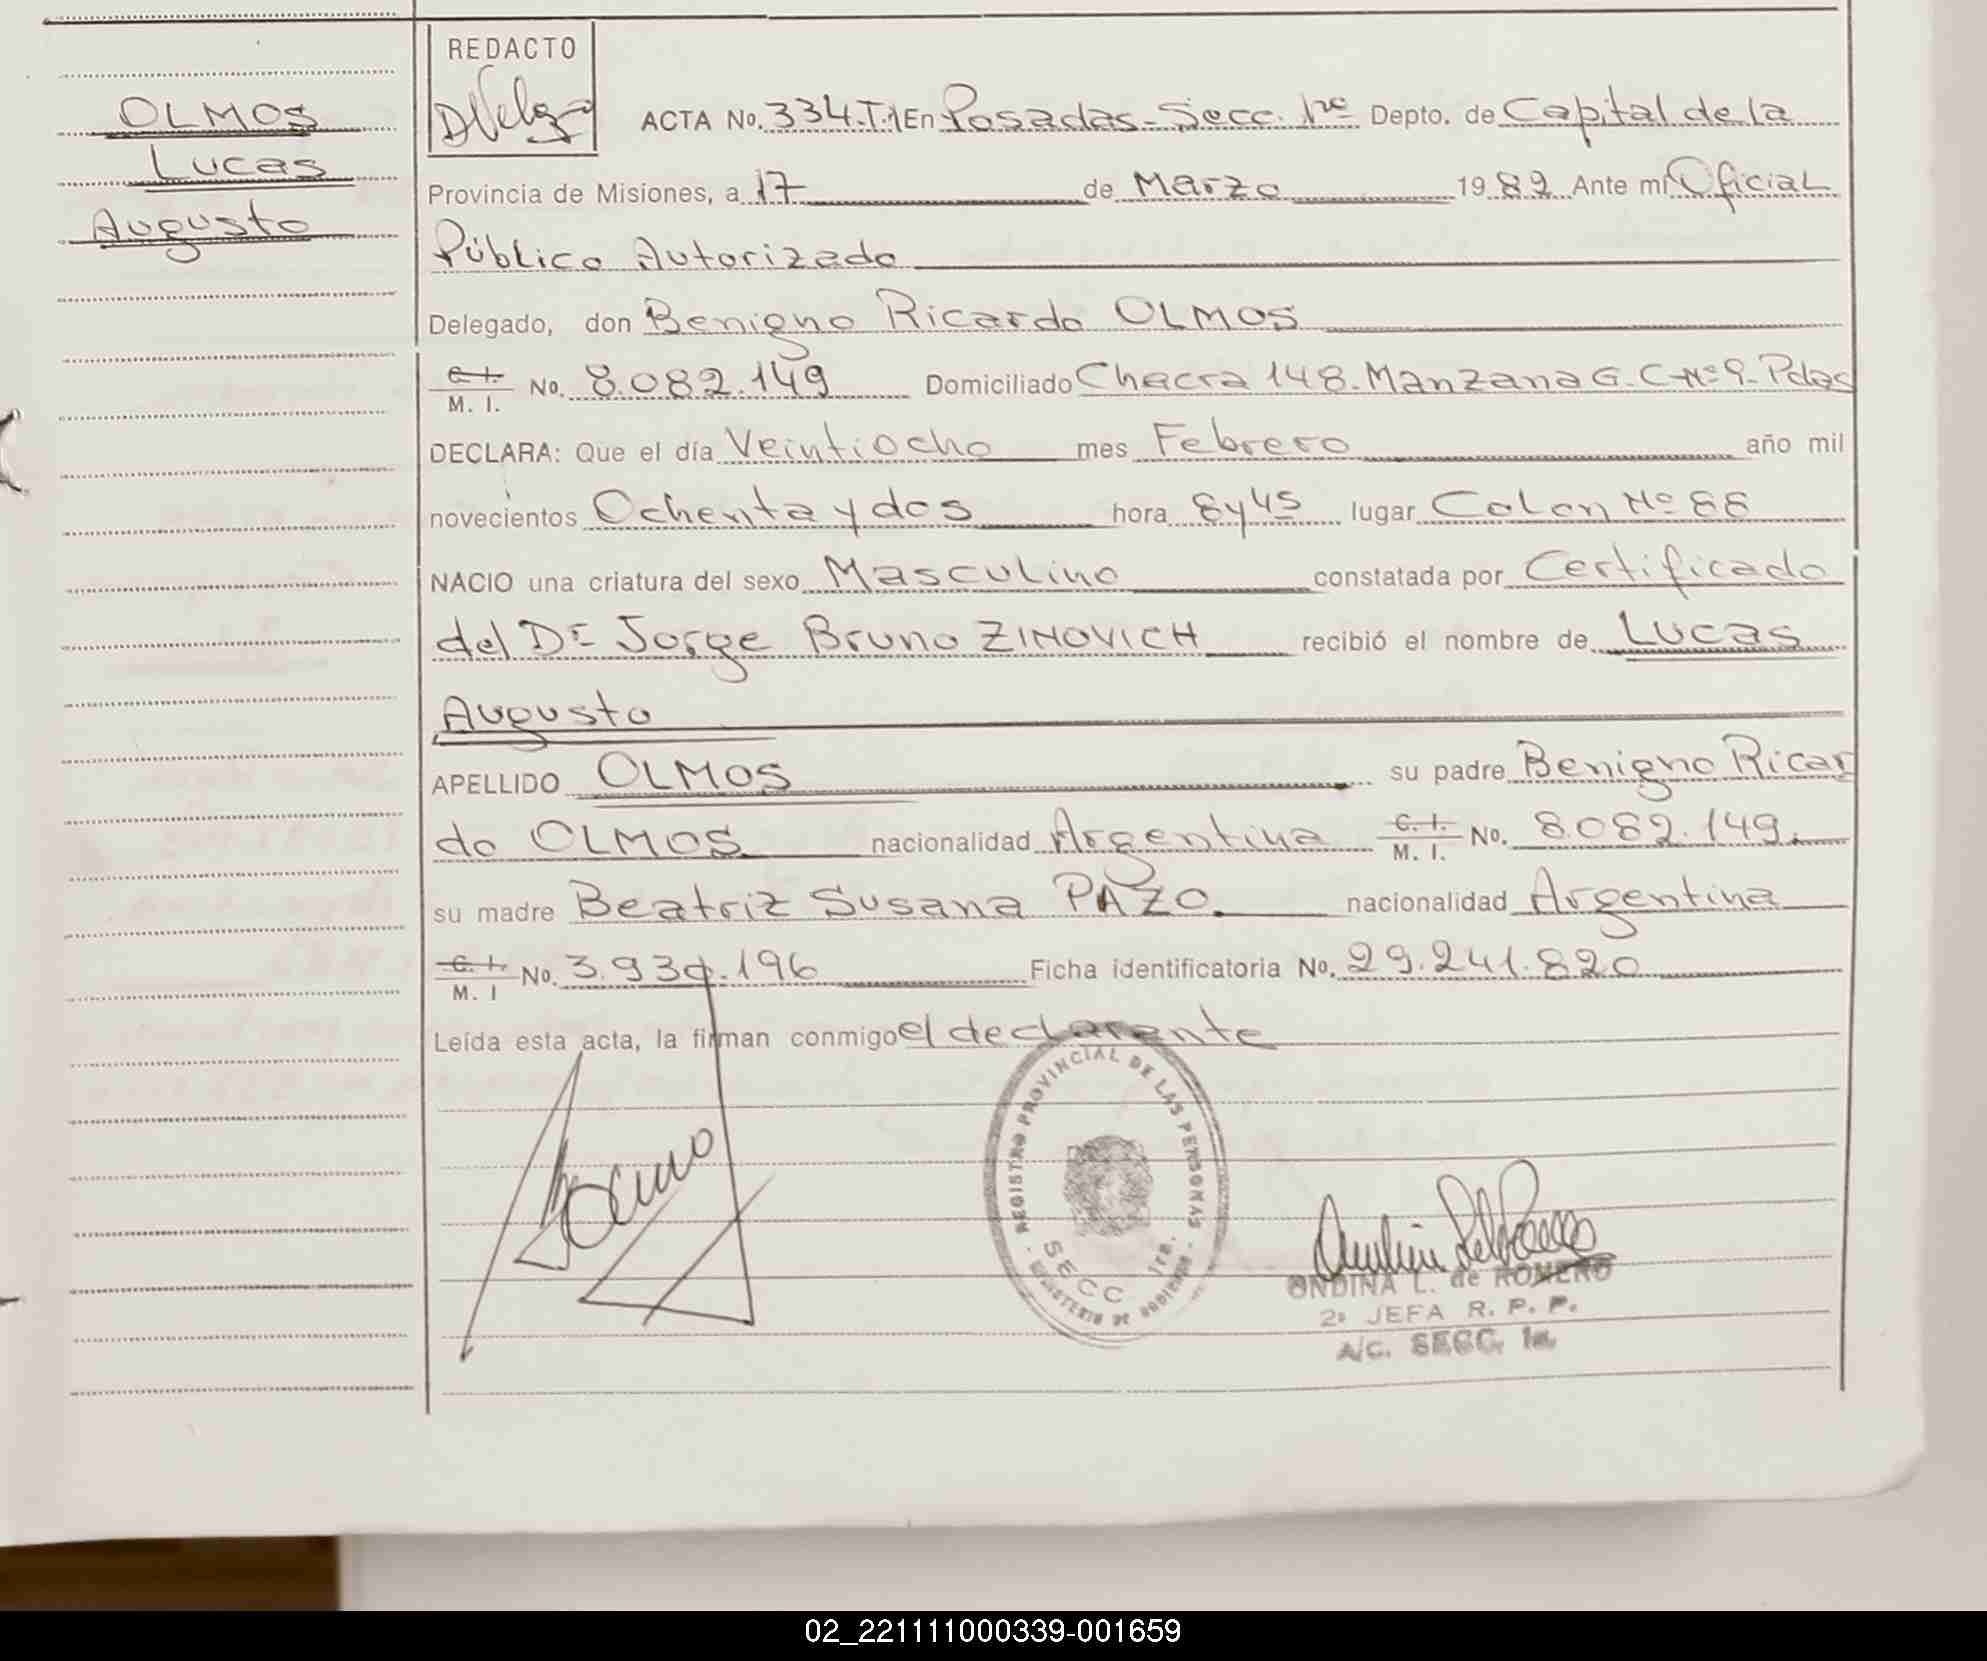 REDACTO
OLMOS
Lucas
Augusto
ACTA No. 334.T.1 En Posadas-Secc. 1ra Depto. de Capital de la
Provincia de Misiones, a 17 de Marzo 1982 Ante mí Oficial
Público Autorizado
Delegado, don Benigno Ricardo OLMOS
C. I.
M. I. No. 8.082.149 Domiciliado Chacra 148. Manzana G. C-Nº 9- Pdas
DECLARA: Que el día Veintiocho mes Febrero año mil
novecientos Ochenta y dos hora 8 y 45 lugar Colon Nº 88
NACIO una criatura del sexo Masculino constatada por Certificado
del Dr Jorge Bruno ZINOVICH recibió el nombre de Lucas
Augusto
APELLIDO OLMOS su padre Benigno Ricar
do OLMOS nacionalidad Argentina C. I.
M. I. No. 8.082.149.
su madre Beatriz Susana PAZO. nacionalidad Argentina
C. I.
M. I No. 3.93 .196 Ficha identificatoria No. 29.241.820
Leída esta acta, la firman conmigo el declarante
REGISTRO PROVINCIAL DE LAS PERSONAS
SECC. 1ra.
MINISTERIO DE GOBIERNO
ONDINA L. de ROMERO
2ª JEFA R. P. P.
A/C. SECC. 1a.
02_221111000339-001659